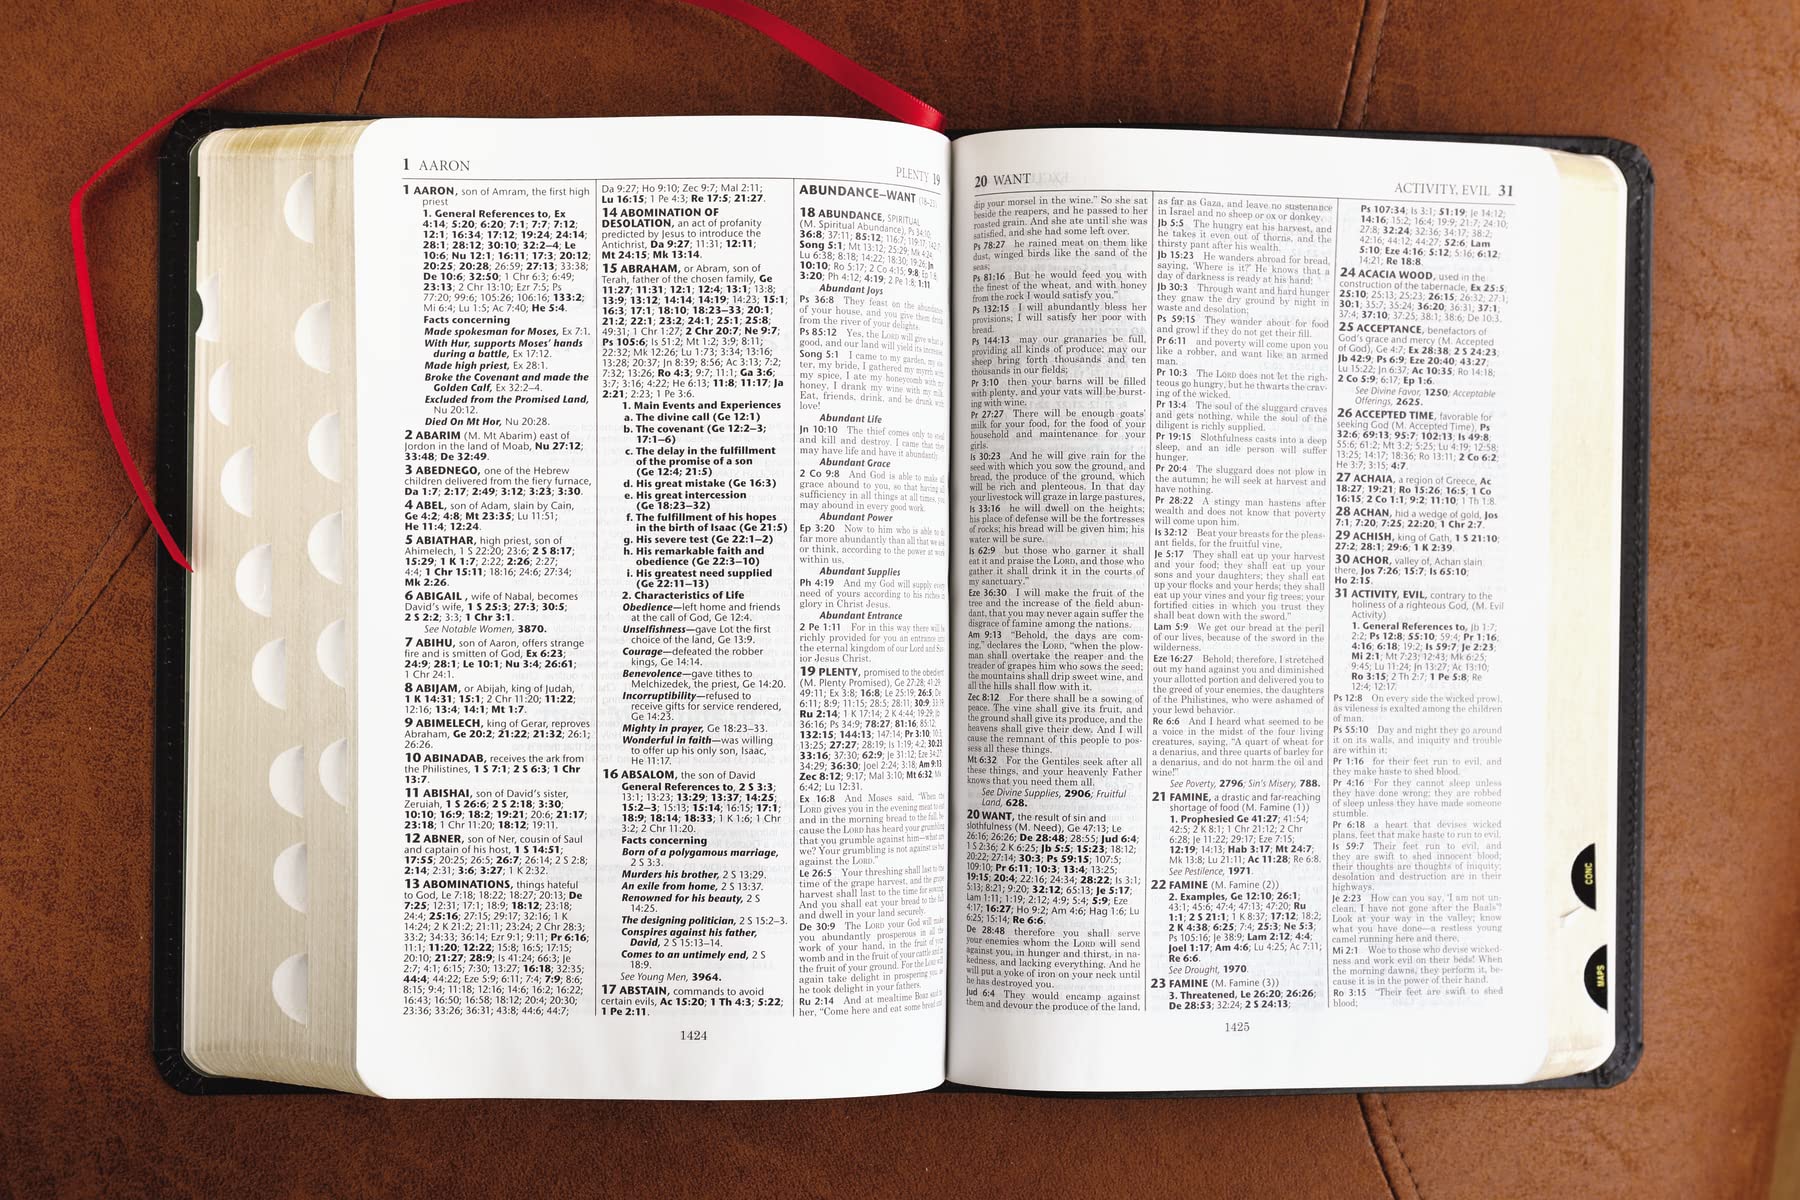 1 AARON
PLENTY 19
1 AARON, son of Amram, the first high
priest
1. General References to, Ex
4:14; 5:20; 6:20; 7:1; 7:7; 7:12;
12:1; 16:34; 17:12; 19:24; 24:14;
28:1; 28:12; 30:10; 32:2–4; Le
10:6; Nu 12:1; 16:11; 17:3; 20:12;
20:25; 20:28; 26:59; 27:13; 33:38;
De 10:6; 32:50; 1 Chr 6:3; 6:49;
23:13; 2 Chr 13:10; Ezr 7:5; Ps
77:20; 99:6; 105:26; 106:16; 133:2;
Mi 6:4; Lu 1:5; Ac 7:40; He 5:4.
Facts concerning
Made spokesman for Moses, Ex 7:1.
With Hur, supports Moses' hands
during a battle, Ex 17:12.
Made high priest, Ex 28:1.
Broke the Covenant and made the
Golden Calf, Ex 32:2–4.
Excluded from the Promised Land,
Nu 20:12.
Died On Mt Hor, Nu 20:28.
2 ABARIM (M. Mt Abarim) east of
Jordon in the land of Moab, Nu 27:12;
33:48; De 32:49.
3 ABEDNEGO, one of the Hebrew
children delivered from the fiery furnace,
Da 1:7; 2:17; 2:49; 3:12; 3:23; 3:30.
4 ABEL, son of Adam, slain by Cain,
Ge 4:2; 4:8; Mt 23:35; Lu 11:51;
He 11:4; 12:24.
5 ABIATHAR, high priest, son of
Ahimelech, 1 S 22:20; 23:6; 2 S 8:17;
15:29; 1 K 1:7; 2:22; 2:26; 2:27;
4:4; 1 Chr 15:11; 18:16; 24:6; 27:34;
Mk 2:26.
6 ABIGAIL , wife of Nabal, becomes
David's wife, 1 S 25:3; 27:3; 30:5;
2 S 2:2; 3:3; 1 Chr 3:1.
See Notable Women, 3870.
7 ABIHU, son of Aaron, offers strange
fire and is smitten of God, Ex 6:23;
24:9; 28:1; Le 10:1; Nu 3:4; 26:61;
1 Chr 24:1.
8 ABIJAM, or Abijah, king of Judah,
1 K 14:31; 15:1; 2 Chr 11:20; 11:22;
12:16; 13:4; 14:1; Mt 1:7.
9 ABIMELECH, king of Gerar, reproves
Abraham, Ge 20:2; 21:22; 21:32; 26:1;
26:26.
10 ABINADAB, receives the ark from
the Philistines, 1 S 7:1; 2 S 6:3; 1 Chr
13:7.
11 ABISHAI, son of David's sister,
Zeruiah, 1 S 26:6; 2 S 2:18; 3:30;
10:10; 16:9; 18:2; 19:21; 20:6; 21:17;
23:18; 1 Chr 11:20; 18:12; 19:11.
12 ABNER, son of Ner, cousin of Saul
and captain of his host, 1 S 14:51;
17:55; 20:25; 26:5; 26:7; 26:14; 2 S 2:8;
2:14; 2:31; 3:6; 3:27; 1 K 2:32.
13 ABOMINATIONS, things hateful
to God, Le 7:18; 18:22; 18:27; 20:13; De
7:25; 12:31; 17:1; 18:9; 18:12; 23:18;
24:4; 25:16; 27:15; 29:17; 32:16; 1 K
14:24; 2 K 21:2; 21:11; 23:24; 2 Chr 28:3;
33:2; 34:33; 36:14; Ezr 9:1; 9:11; Pr 6:16;
11:1; 11:20; 12:22; 15:8; 16:5; 17:15;
20:10; 21:27; 28:9; Is 41:24; 66:3; Je
2:7; 4:1; 6:15; 7:30; 13:27; 16:18; 32:35;
44:4; 44:22; Eze 5:9; 6:11; 7:4; 7:9; 8:6;
8:15; 9:4; 11:18; 12:16; 14:6; 16:2; 16:22;
16:43; 16:50; 16:58; 18:12; 20:4; 20:30;
23:36; 33:26; 36:31; 43:8; 44:6; 44:7;
Da 9:27; Ho 9:10; Zec 9:7; Mal 2:11;
Lu 16:15; 1 Pe 4:3; Re 17:5; 21:27.
14 ABOMINATION OF
DESOLATION, an act of profanity
predicted by Jesus to introduce the
Antichrist, Da 9:27; 11:31; 12:11;
Mt 24:15; Mk 13:14.
15 ABRAHAM, or Abram, son of
Terah, father of the chosen family, Ge
11:27; 11:31; 12:1; 12:4; 13:1; 13:8;
13:9; 13:12; 14:14; 14:19; 14:23; 15:1;
16:3; 17:1; 18:10; 18:23–33; 20:1;
21:2; 22:1; 23:2; 24:1; 25:1; 25:8;
49:31; 1 Chr 1:27; 2 Chr 20:7; Ne 9:7;
Ps 105:6; Is 51:2; Mt 1:2; 3:9; 8:11;
22:32; Mk 12:26; Lu 1:73; 3:34; 13:16;
13:28; 20:37; Jn 8:39; 8:56; Ac 3:13; 7:2;
7:32; 13:26; Ro 4:3; 9:7; 11:1; Ga 3:6;
3:7; 3:16; 4:22; He 6:13; 11:8; 11:17; Ja
2:21; 2:23; 1 Pe 3:6.
1. Main Events and Experiences
a. The divine call (Ge 12:1)
b. The covenant (Ge 12:2–3;
17:1–6)
c. The delay in the fulfillment
of the promise of a son
(Ge 12:4; 21:5)
d. His great mistake (Ge 16:3)
e. His great intercession
(Ge 18:23–32)
f. The fulfillment of his hopes
in the birth of Isaac (Ge 21:5)
g. His severe test (Ge 22:1–2)
h. His remarkable faith and
obedience (Ge 22:3–10)
i. His greatest need supplied
(Ge 22:11–13)
2. Characteristics of Life
Obedience—left home and friends
at the call of God, Ge 12:4.
Unselfishness—gave Lot the first
choice of the land, Ge 13:9.
Courage—defeated the robber
kings, Ge 14:14.
Benevolence—gave tithes to
Melchizedek, the priest, Ge 14:20.
Incorruptibility—refused to
receive gifts for service rendered,
Ge 14:23.
Mighty in prayer, Ge 18:23–33.
Wonderful in faith—was willing
to offer up his only son, Isaac,
He 11:17.
16 ABSALOM, the son of David
General References to, 2 S 3:3;
13:1; 13:23; 13:29; 13:37; 14:25;
15:2–3; 15:13; 15:14; 16:15; 17:1;
18:9; 18:14; 18:33; 1 K 1:6; 1 Chr
3:2; 2 Chr 11:20.
Facts concerning
Born of a polygamous marriage,
2 S 3:3.
Murders his brother, 2 S 13:29.
An exile from home, 2 S 13:37.
Renowned for his beauty, 2 S
14:25.
The designing politician, 2 S 15:2–3.
Conspires against his father,
David, 2 S 15:13–14.
Comes to an untimely end, 2 S
18:9.
See Young Men, 3964.
17 ABSTAIN, commands to avoid
certain evils, Ac 15:20; 1 Th 4:3; 5:22;
1 Pe 2:11.
ABUNDANCE–WANT (18–23)
18 ABUNDANCE, SPIRITUAL
(M. Spiritual Abundance), Ps 34:10;
36:8; 37:11; 85:12; 116:7; 119:17;
Song 5:1; Mt 13:12; 25:29; Mk 4:24;
Lu 6:38; 8:18; 14:22; 18:30; 19:26; Jn
10:10; Ro 5:17; 2 Co 4:15; 9:8;
3:20; Ph 4:12; 4:19; 2 Pe 1:8; 1:11
Abundant Joys
Ps 36:8 They feast on the abundance
of your house, and you give them drink
from the river of your delights.
Ps 85:12 Yes, the LORD will give what is
good, and our land will yield its increase.
Song 5:1 I came to my garden, my
ter, my bride, I gathered my myrrh with
my spice, I ate my honeycomb with my
honey, I drank my wine with my
Eat, friends, drink, and be drunk with
love!
Abundant Life
Jn 10:10 The thief comes only to
and kill and destroy. I came that they
may have life and have it abundantly.
Abundant Grace
2 Co 9:8 And God is able to make all
grace abound to you, so that having all
sufficiency in all things at all times, you
may abound in every good work.
Abundant Power
Ep 3:20 Now to him who is able to do
far more abundantly than all that we ask
or think, according to the power at work
within us,
Abundant Supplies
Ph 4:19 And my God will supply every
need of yours according to his riches in
glory in Christ Jesus.
Abundant Entrance
2 Pe 1:11 For in this way there will be
richly provided for you an entrance into
the eternal kingdom of our Lord and Sav-
ior Jesus Christ.
19 PLENTY, promised to the obedient
(M. Plenty Promised), Ge 27:28; 41:29;
49:11; Ex 3:8; 16:8; Le 25:19; 26:5; De
6:11; 8:9; 11:15; 28:5; 28:11; 30:9; 33:19;
Ru 2:14; 1 K 17:14; 2 K 4:44; 19:29; Jb
36:16; Ps 34:9; 78:27; 81:16; 85:12;
132:15; 144:13; 147:14; Pr 3:10; 10:3;
13:25; 27:27; 28:19; Is 1:19; 4:2; 30:23;
33:16; 37:30; 62:9; Je 31:12; Eze 34:27;
34:29; 36:30; Joel 2:24; 3:18; Am 9:13;
Zec 8:12; 9:17; Mal 3:10; Mt 6:32; Mk
6:42; Lu 12:31.
Ex 16:8 And Moses said, "When the
LORD gives you in the evening meat to eat
and in the morning bread to the full, be-
cause the LORD has heard your grumbling
that you grumble against him—what are
we? Your grumbling is not against us but
against the LORD."
Le 26:5 Your threshing shall last to the
time of the grape harvest, and the grape
harvest shall last to the time for sowing.
And you shall eat your bread to the full
and dwell in your land securely.
De 30:9 The LORD your God will make
you abundantly prosperous in all the
work of your hand, in the fruit of your
womb and in the fruit of your cattle and in
the fruit of your ground. For the LORD will
again take delight in prospering you, as
he took delight in your fathers.
Ru 2:14 And at mealtime Boaz said to
her, "Come here and eat some bread and
1424
20 WANT
ACTIVITY, EVIL 31
dip your morsel in the wine." So she sat
beside the reapers, and he passed to her
roasted grain. And she ate until she was
satisfied, and she had some left over.
Ps 78:27 he rained meat on them like
dust, winged birds like the sand of the
seas;
Ps 81:16 But he would feed you with
the finest of the wheat, and with honey
from the rock I would satisfy you."
Ps 132:15 I will abundantly bless her
provisions; I will satisfy her poor with
bread.
Ps 144:13 may our granaries be full,
providing all kinds of produce; may our
sheep bring forth thousands and ten
thousands in our fields;
Pr 3:10 then your barns will be filled
with plenty, and your vats will be burst-
ing with wine.
Pr 27:27 There will be enough goats'
milk for your food, for the food of your
household and maintenance for your
girls.
Is 30:23 And he will give rain for the
seed with which you sow the ground, and
bread, the produce of the ground, which
will be rich and plenteous. In that day
your livestock will graze in large pastures,
Is 33:16 he will dwell on the heights;
his place of defense will be the fortresses
of rocks; his bread will be given him; his
water will be sure.
Is 62:9 but those who garner it shall
eat it and praise the LORD, and those who
gather it shall drink it in the courts of
my sanctuary."
Eze 36:30 I will make the fruit of the
tree and the increase of the field abun-
dant, that you may never again suffer the
disgrace of famine among the nations.
Am 9:13 "Behold, the days are com-
ing," declares the LORD, "when the plow-
man shall overtake the reaper and the
treader of grapes him who sows the seed;
the mountains shall drip sweet wine, and
all the hills shall flow with it.
Zec 8:12 For there shall be a sowing of
peace. The vine shall give its fruit, and
the ground shall give its produce, and the
heavens shall give their dew. And I will
cause the remnant of this people to pos-
sess all these things.
Mt 6:32 For the Gentiles seek after all
these things, and your heavenly Father
knows that you need them all.
See Divine Supplies, 2906; Fruitful
Land, 628.
20 WANT, the result of sin and
slothfulness (M. Need), Ge 47:13; Le
26:16; 26:26; De 28:48; 28:55; Jud 6:4;
1 S 2:36; 2 K 6:25; Jb 5:5; 15:23; 18:12;
20:22; 27:14; 30:3; Ps 59:15; 107:5;
109:10; Pr 6:11; 10:3; 13:4; 13:25;
19:15; 20:4; 22:16; 24:34; 28:22; Is 3:1;
5:13; 8:21; 9:20; 32:12; 65:13; Je 5:17;
Lam 1:11; 1:19; 2:12; 4:9; 5:4; 5:9; Eze
4:17; 16:27; Ho 9:2; Am 4:6; Hag 1:6; Lu
6:25; 15:14; Re 6:6.
De 28:48 therefore you shall serve
your enemies whom the LORD will send
against you, in hunger and thirst, in na-
kedness, and lacking everything. And he
will put a yoke of iron on your neck until
he has destroyed you.
Jud 6:4 They would encamp against
them and devour the produce of the land,
as far as Gaza, and leave no sustenance
in Israel and no sheep or ox or donkey.
Jb 5:5 The hungry eat his harvest, and
he takes it even out of thorns, and the
thirsty pant after his wealth.
Jb 15:23 He wanders abroad for bread,
saying, 'Where is it?' He knows that a
day of darkness is ready at his hand;
Jb 30:3 Through want and hard hunger
they gnaw the dry ground by night in
waste and desolation;
Ps 59:15 They wander about for food
and growl if they do not get their fill.
Pr 6:11 and poverty will come upon you
like a robber, and want like an armed
man.
Pr 10:3 The LORD does not let the right-
eous go hungry, but he thwarts the crav-
ing of the wicked.
Pr 13:4 The soul of the sluggard craves
and gets nothing, while the soul of the
diligent is richly supplied.
Pr 19:15 Slothfulness casts into a deep
sleep, and an idle person will suffer
hunger.
Pr 20:4 The sluggard does not plow in
the autumn; he will seek at harvest and
have nothing.
Pr 28:22 A stingy man hastens after
wealth and does not know that poverty
will come upon him.
Is 32:12 Beat your breasts for the pleas-
ant fields, for the fruitful vine,
Je 5:17 They shall eat up your harvest
and your food; they shall eat up your
sons and your daughters; they shall eat
up your flocks and your herds; they shall
eat up your vines and your fig trees; your
fortified cities in which you trust they
shall beat down with the sword."
Lam 5:9 We get our bread at the peril
of our lives, because of the sword in the
wilderness.
Eze 16:27 Behold, therefore, I stretched
out my hand against you and diminished
your allotted portion and delivered you to
the greed of your enemies, the daughters
of the Philistines, who were ashamed of
your lewd behavior.
Re 6:6 And I heard what seemed to be
a voice in the midst of the four living
creatures, saying, "A quart of wheat for
a denarius, and three quarts of barley for
a denarius, and do not harm the oil and
wine!"
See Poverty, 2796; Sin's Misery, 788.
21 FAMINE, a drastic and far-reaching
shortage of food (M. Famine (1))
1. Prophesied Ge 41:27; 41:54;
42:5; 2 K 8:1; 1 Chr 21:12; 2 Chr
6:28; Je 11:22; 29:17; Eze 7:15;
12:19; 14:13; Hab 3:17; Mt 24:7;
Mk 13:8; Lu 21:11; Ac 11:28; Re 6:8.
See Pestilence, 1971.
22 FAMINE (M. Famine (2))
2. Examples, Ge 12:10; 26:1;
43:1; 45:6; 47:4; 47:13; 47:20; Ru
1:1; 2 S 21:1; 1 K 8:37; 17:12; 18:2;
2 K 4:38; 6:25; 7:4; 25:3; Ne 5:3;
Ps 105:16; Je 38:9; Lam 2:12; 4:4;
Joel 1:17; Am 4:6; Lu 4:25; Ac 7:11;
Re 6:6.
See Drought, 1970.
23 FAMINE (M. Famine (3))
3. Threatened, Le 26:20; 26:26;
De 28:53; 32:24; 2 S 24:13;
Ps 107:34; Is 3:1; 51:19; Je 14:12;
14:16; 15:2; 16:4; 19:9; 21:7; 24:10;
27:8; 32:24; 32:36; 34:17; 38:2;
42:16; 44:12; 44:27; 52:6; Lam
5:10; Eze 4:16; 5:12; 5:16; 6:12;
14:21; Re 18:8.
24 ACACIA WOOD, used in the
construction of the tabernacle, Ex 25:5;
25:10; 25:13; 25:23; 26:15; 26:32; 27:1;
30:1; 35:7; 35:24; 36:20; 36:31; 37:1;
37:4; 37:10; 37:25; 38:1; 38:6; De 10:3.
25 ACCEPTANCE, benefactors of
God's grace and mercy (M. Accepted
of God), Ge 4:7; Ex 28:38; 2 S 24:23;
Jb 42:9; Ps 6:9; Eze 20:40; 43:27;
Lu 15:22; Jn 6:37; Ac 10:35; Ro 14:18;
2 Co 5:9; 6:17; Ep 1:6.
See Divine Favor, 1250; Acceptable
Offerings, 2625.
26 ACCEPTED TIME, favorable for
seeking God (M. Accepted Time), Ps
32:6; 69:13; 95:7; 102:13; Is 49:8;
55:6; 61:2; Mt 3:2; 5:25; Lu 4:19; 12:58;
13:25; 14:17; 18:36; Ro 13:11; 2 Co 6:2;
He 3:7; 3:15; 4:7.
27 ACHAIA, a region of Greece, Ac
18:27; 19:21; Ro 15:26; 16:5; 1 Co
16:15; 2 Co 1:1; 9:2; 11:10; 1 Th 1:8.
28 ACHAN, hid a wedge of gold, Jos
7:1; 7:20; 7:25; 22:20; 1 Chr 2:7.
29 ACHISH, king of Gath, 1 S 21:10;
27:2; 28:1; 29:6; 1 K 2:39.
30 ACHOR, valley of, Achan slain
there, Jos 7:26; 15:7; Is 65:10;
Ho 2:15.
31 ACTIVITY, EVIL, contrary to the
holiness of a righteous God, (M. Evil
Activity)
1. General References to, Jb 1:7;
2:2; Ps 12:8; 55:10; 59:4; Pr 1:16;
4:16; 6:18; 19:2; Is 59:7; Je 2:23;
Mi 2:1; Mt 7:23; 12:43; Mk 6:25;
9:45; Lu 11:24; Jn 13:27; Ac 13:10;
Ro 3:15; 2 Th 2:7; 1 Pe 5:8; Re
12:4; 12:17.
Ps 12:8 On every side the wicked prowl,
as vileness is exalted among the children
of man.
Ps 55:10 Day and night they go around
it on its walls, and iniquity and trouble
are within it;
Pr 1:16 for their feet run to evil, and
they make haste to shed blood.
Pr 4:16 For they cannot sleep unless
they have done wrong; they are robbed
of sleep unless they have made someone
stumble.
Pr 6:18 a heart that devises wicked
plans, feet that make haste to run to evil,
Is 59:7 Their feet run to evil, and
they are swift to shed innocent blood;
their thoughts are thoughts of iniquity;
desolation and destruction are in their
highways.
Je 2:23 How can you say, 'I am not un-
clean, I have not gone after the Baals'?
Look at your way in the valley; know
what you have done—a restless young
camel running here and there,
Mi 2:1 Woe to those who devise wicked-
ness and work evil on their beds! When
the morning dawns, they perform it, be-
cause it is in the power of their hand.
Ro 3:15 "Their feet are swift to shed
blood;
1425
CONC
MAPS